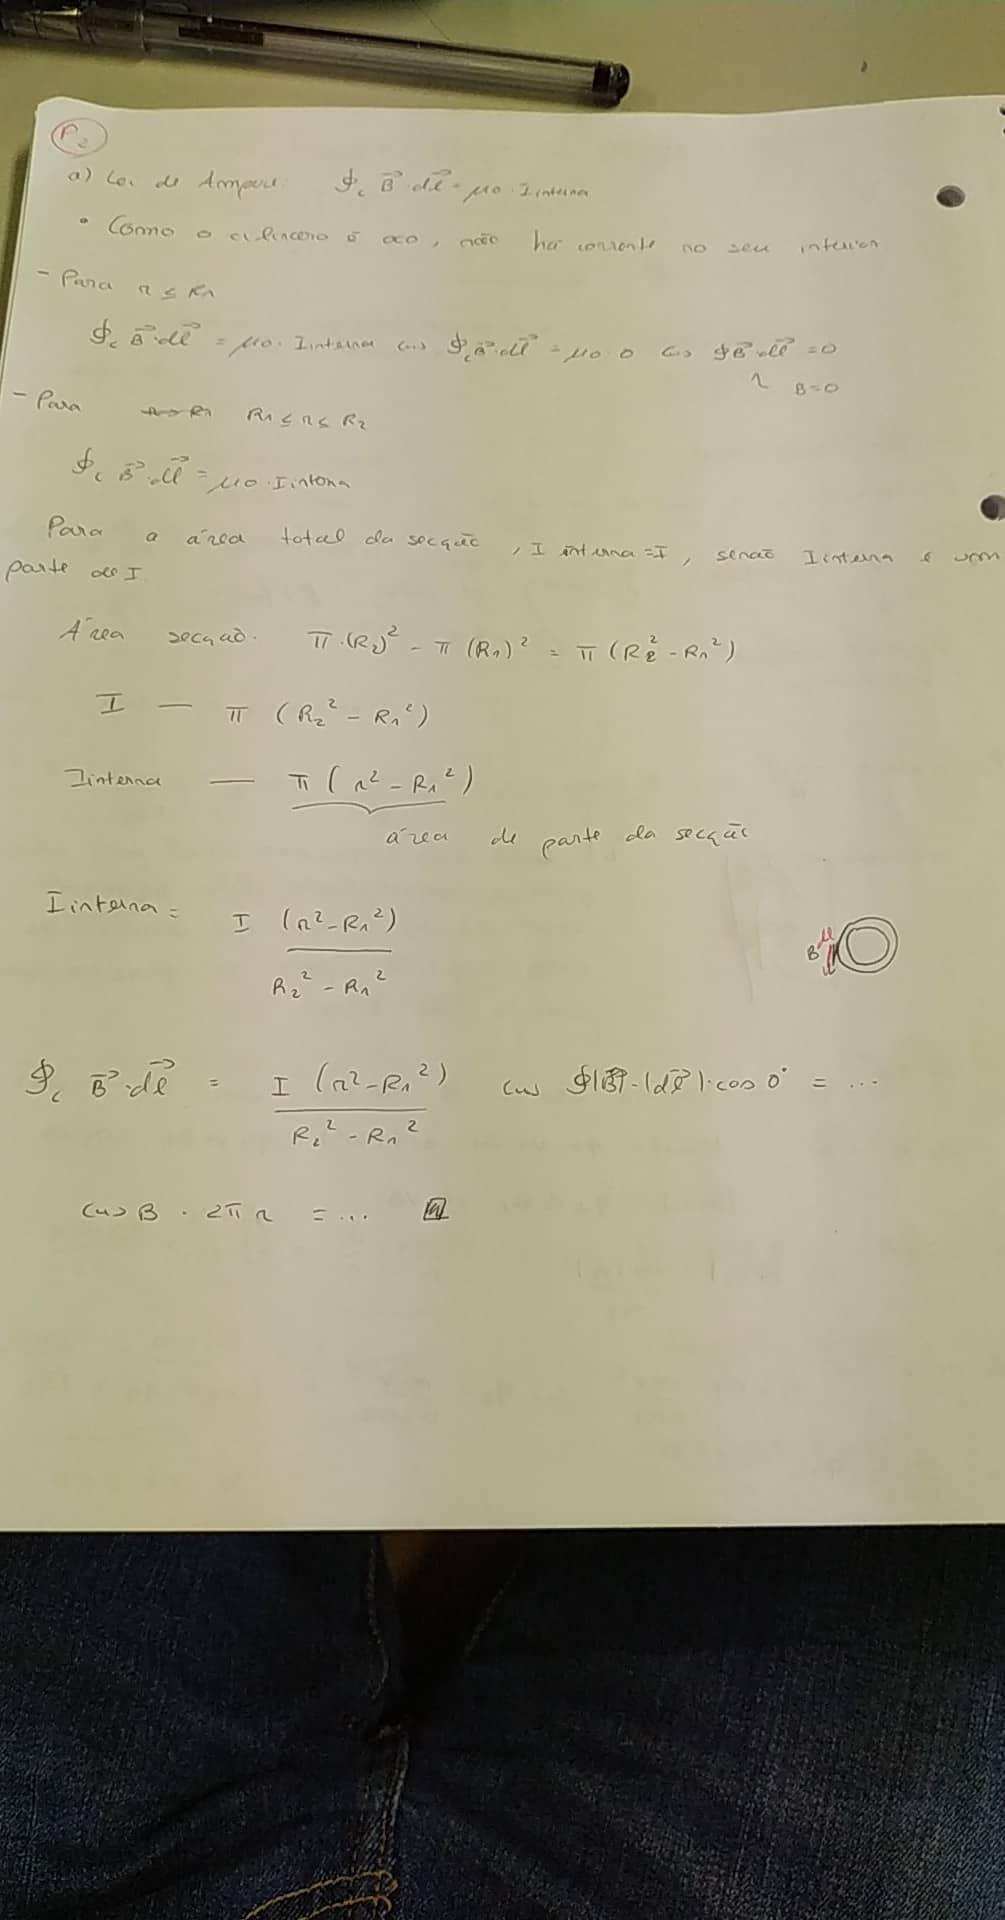 P2
a) Lei de Ampere: ∮c B⃗·dl⃗ = μ0 · Iinterna
• Como o cilindro é oco, não há corrente no seu interior
- Para r ≤ R1
∮c B⃗·dl⃗ = μ0 · Iinterna (=> ∮c B⃗·dl⃗ = μ0 · 0 (=> ∮ B⃗·dl⃗ = 0
B=0
- Para R1 ≤ r ≤ R2
∮c B⃗·dl⃗ = μ0 · Iinterna
Para a área total da secção, I interna = I, senão Iinterna é um
parte de I
Área secção. π·(R2)² - π (R1)² = π (R2² - R1²)
I — π (R2² - R1²)
Iinterna — π (r² - R1²)
área de parte da secção
Iinterna = I (r² - R1²)
R2² - R1²
B
∮c B⃗·dl⃗ = I (r² - R1²) (=> ∮|B⃗|·|dl⃗|·cos 0° = ...
R2² - R1²
(=> B · 2π r = ...